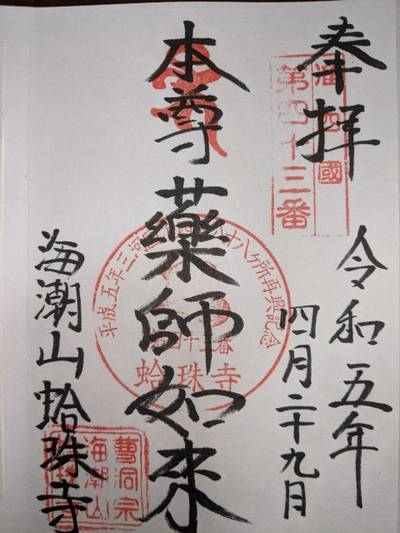 奉拝
第四十三番
令和五年
四月二十九月
本尊 藥師如來
平成五年三河
十八ヶ所再興記念
番
蛤珠寺
海潮山蛤珠寺
曹洞宗
海潮山